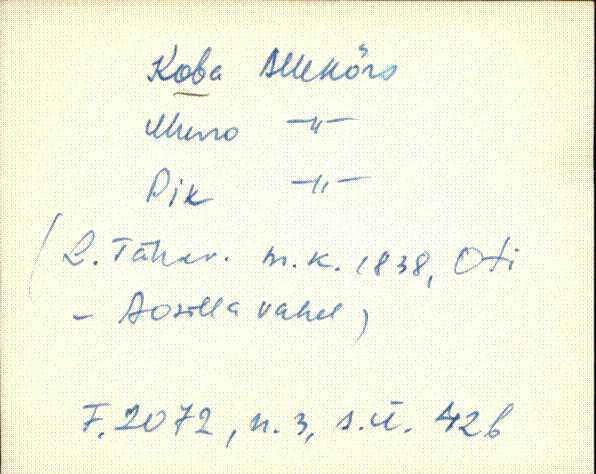 Koba Allikõrs
Muno —"—
Pik —"—
(L. Tähav. m.k. 1838, Oti
- Aosilla vahel)
F. 2072, n. 3, s.ü. 42b